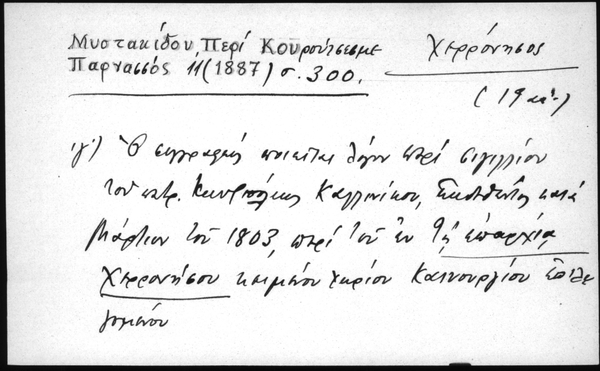 Μυστακίδου, Περί Κουρούτσεσμε
Χερρόνησος
Παρνασσός 11 (1887) σ. 300.
(19 αἰ.)
γ) Ὁ συγγραφεύς ποιεῖται λόγον περί σιγιλλίου
τοῦ πατρ. Κων/πόλεως Καλλινίκου, ἐκδοθέντος κατά
Μάρτιον τοῦ 1803, περί τοῦ ἐν τῇ ἐπαρχίᾳ
Χερρονήσου κειμένου χωρίου Καινουργίου ἐπιλε
γομένου